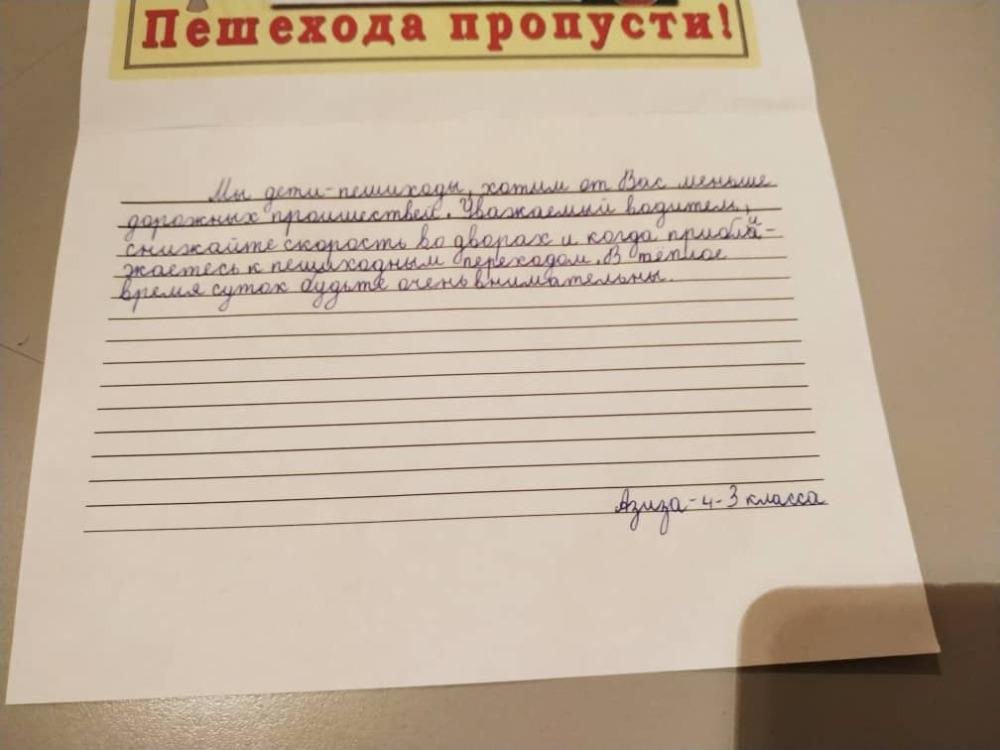 Пешехода пропусти!
Мы дети-пешиходы, хотим от Вас меньше
дорожных проишествей. Уважаемый водитель,
снижайте скорость во дворах и когда прибли-
жаетесь к пешиходным переходом. В тёплое
время суток будьте очень внимательны.
Азиза-4-3 класса